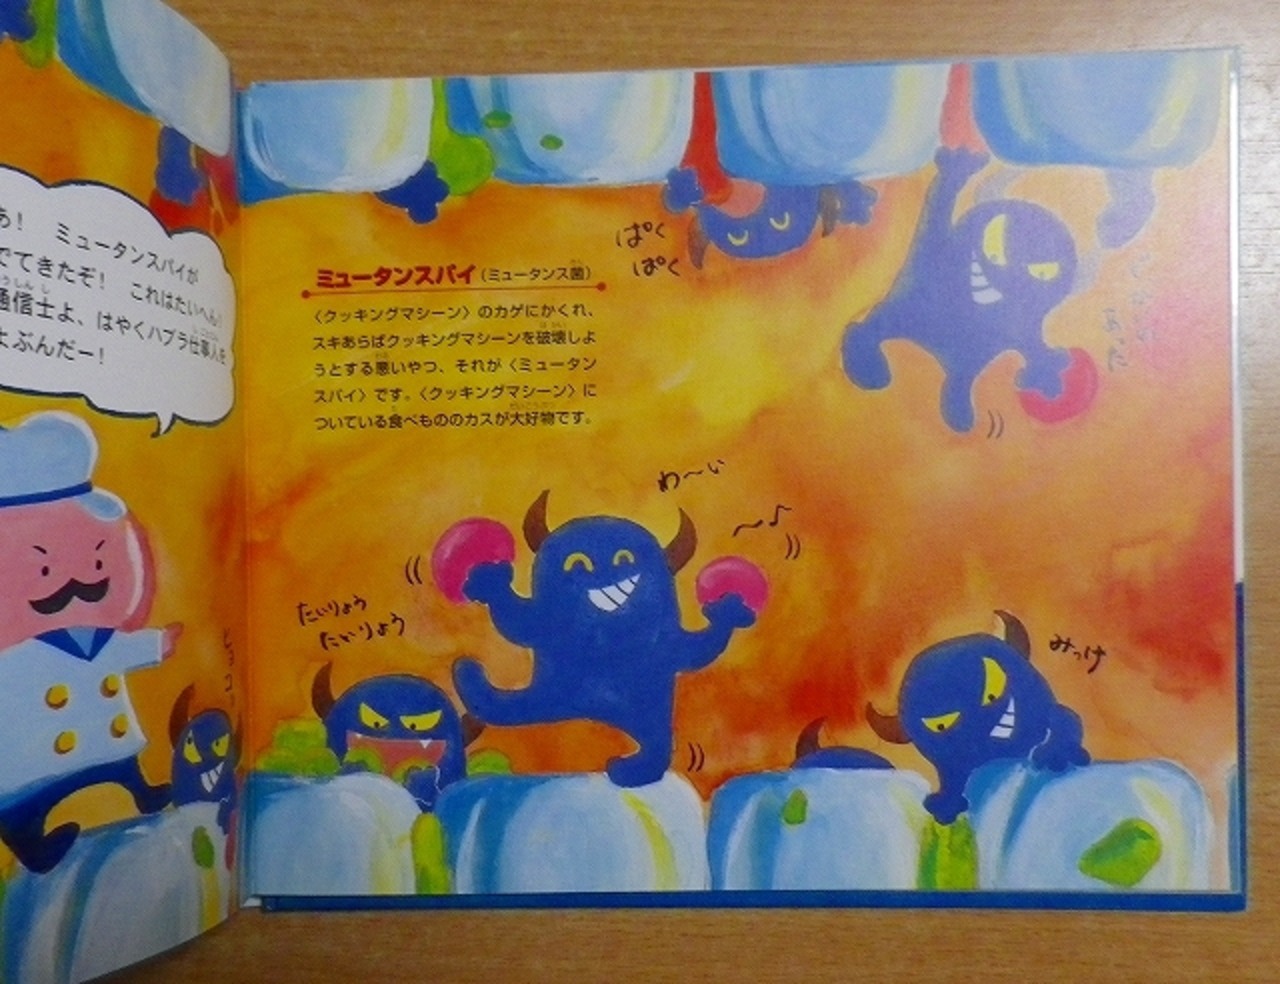 あ! ミュータンスパイが
でてきたぞ! これはたいへん!
通信士よ、はやくハブラ仕事人を
よぶんだー!
ミュータンスパイ(ミュータンス菌)
〈クッキングマシーン〉のカゲにかくれ、
スキあらばクッキングマシーンを破壊しよ
うとする悪いやつ、それが〈ミュータン
スパイ〉です。〈クッキングマシーン〉に
ついている食べもののカスが大好物です。
ぱく
ぱく
あった
わ〜い
〜♪
たいりょう
たいりょう
みっけ